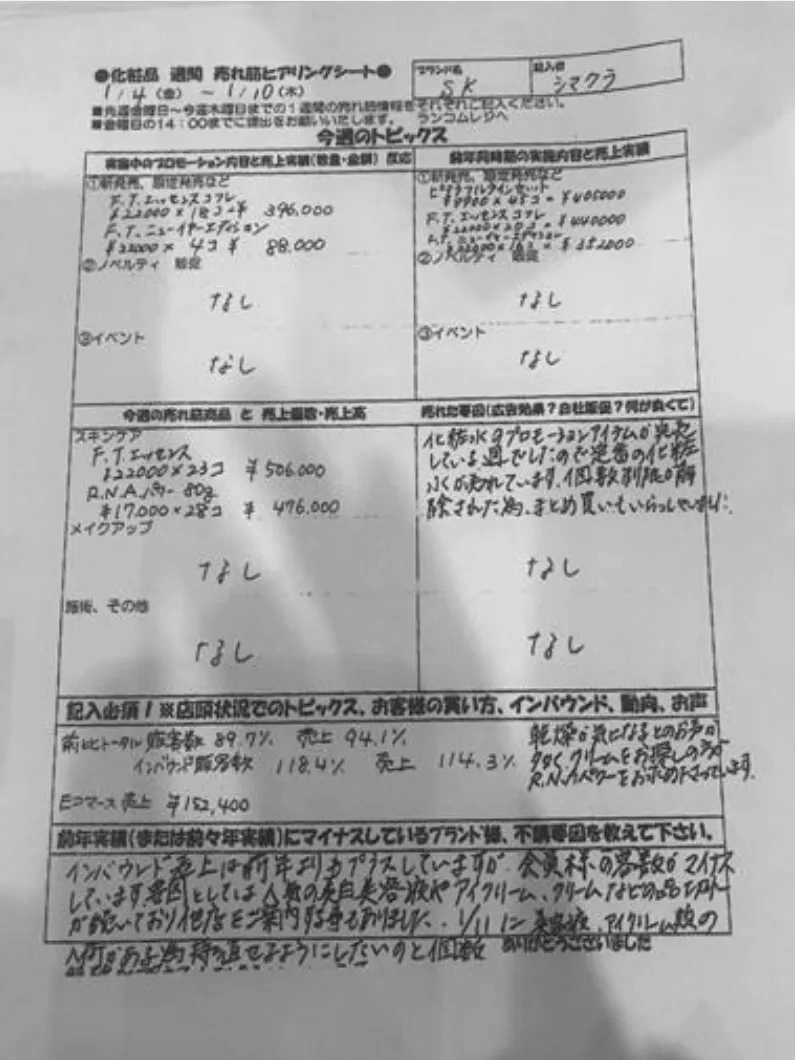 ●化粧品 週間 売れ筋ヒアリングシート●
ブランド名 SK
記入者 シマクラ
1/4(金) ~ 1/10(木)
■先週金曜日~今週木曜日までの1週間の売れ筋情報をそれぞれご記入ください。
■金曜日の14:00までに提出をお願いいたします。 ランコムレジへ
今週のトピックス
実施中のプロモーション内容と売上実績(数量・金額) 反応
①新発売、限定発売など
F.T.エッセンスコフレ
¥22000×18コ=¥ 396,000
F.T.ニューイヤーエディション
¥22000× 4コ ¥ 88,000
②ノベルティ 販促
なし
③イベント
なし
前年同時期の実施内容と売上実績
①新発売、限定発売など
¥9000×45コ=¥405000
F.T.エッセンスコフレ
¥22000×20コ=¥440000
F.T.ニューイヤーエディション
¥22000×16コ=¥352000
②ノベルティ 販促
なし
③イベント
なし
今週の売れ筋商品 と 売上個数・売上高
スキンケア
F.T.エッセンス
¥22000×23コ ¥506,000
R.N.A.パワー 80g
¥17,000×28コ ¥ 476,000
メイクアップ
なし
施術、その他
なし
売れた要因(広告効果?自社販促?何が良くて)
化粧水のプロモーションアイテムが
している週でしたので定番の化粧
水が売れています。個数制限が解
除された為、まとめ買いもいらっしゃいました。
なし
なし
記入必須!※店頭状況でのトピックス、お客様の買い方、インバウンド、動向、お声
前比トータル 販客数 89.7% 売上 94.1%
インバウンド販客数 118.4% 売上 114.3%
Eコマース売上 ¥152,400
乾燥が気になるとのお声が
多くクリームをお探しの方が
R.N.A.パワーをお求め下さっています。
前年実績(または前々年実績)にマイナスしているブランド様、不調要因を教えて下さい。
インバウンド売上は前年よりもプラスしていますが、会員様の客数がマイナス
しています。要因としては人気の美白美容液やアイクリーム、クリームなどの品
が続いており他店をご案内する事もありました。1/11に美容液、アイクリーム
がある為持ち直せるようにしたいのと個数 ありがとうございました